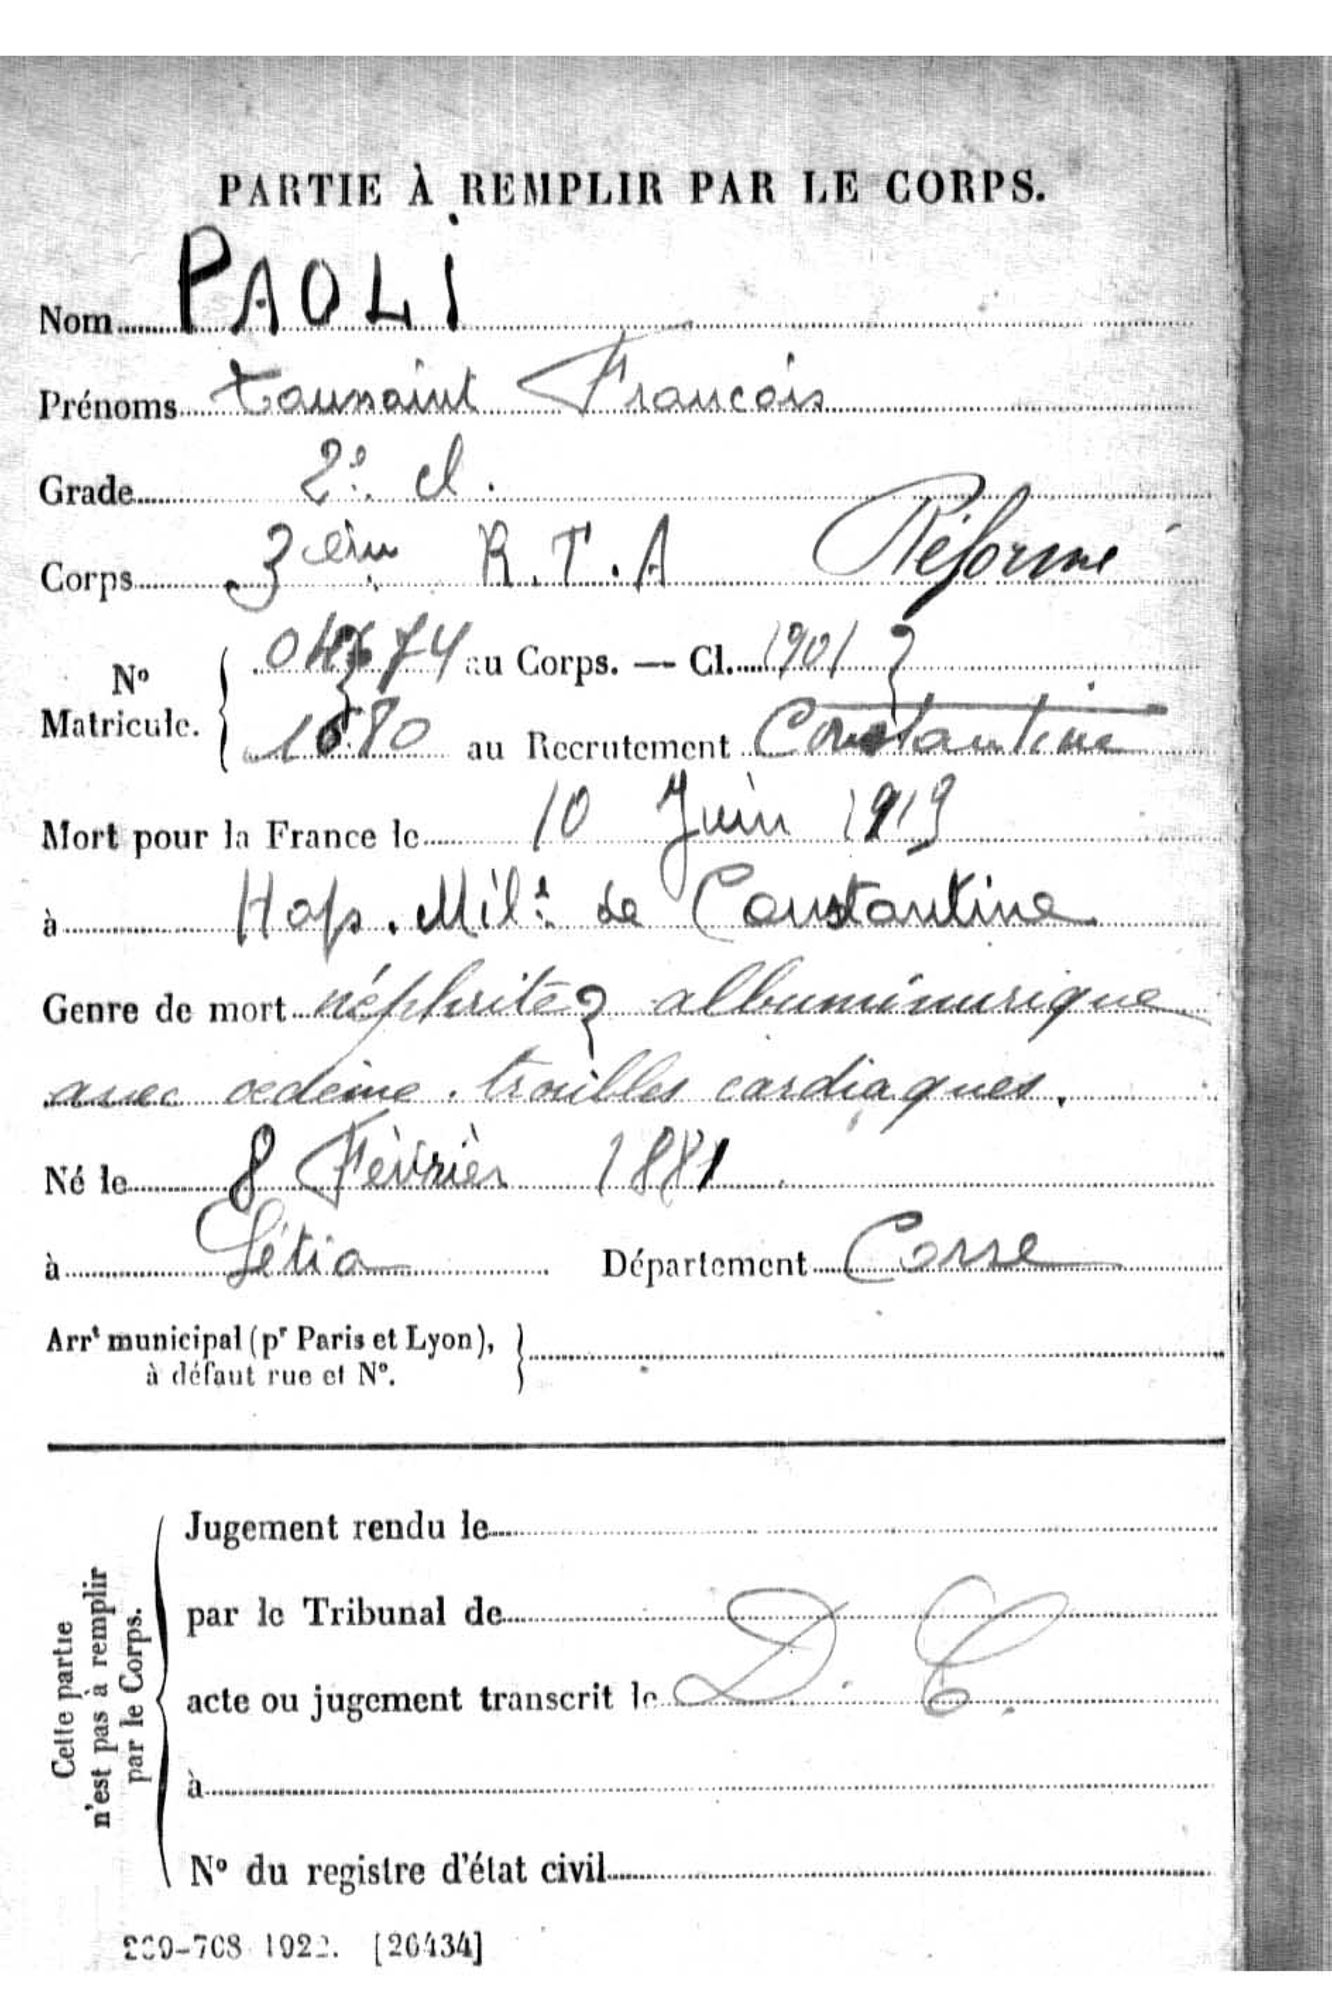 PARTIE À REMPLIR PAR LE CORPS.
Nom PAOLI
Prénoms toussaint François
Grade 2e cl.
Corps 3ème R.T.A Réformé
No Matricule. 74 au Corps. — Cl. 1901
1680 au Recrutement Constantine
Mort pour la France le 10 Juin 1919
à Hop. Milt. de Constantine
Genre de mort néphrite albuminurique
avec oedème. troubles cardiaques.
Né le 8 Février 1881
à Létia Département Corse
Arrt municipal (pr Paris et Lyon),
à défaut rue et No.
Cette partie
n'est pas à remplir
par le Corps.
Jugement rendu le
par le Tribunal de
acte ou jugement transcrit le D. C.
à
No du registre d'état civil
-708 1922. [26434]